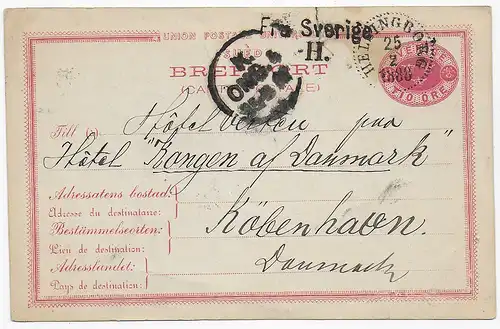 Fra Sverige
H.
UNION POSTALE UNIVERSELLE
HELSINGBORG
25
2
1886
K.
OMB. 4
SVERIGE
TIO ÖRE
BREFKORT
Till (à)
Hôtel Verten paa
Hôtel "Kongen af Danmark"
Adressatens bostad:
Adresse du destinataire:
Bestämmelseorten:
Lieu de destination:
Adresslandet:
Pays de destination:
Köbenhavn.
Danmark